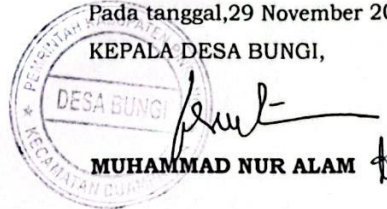 Pada tanggal,29 November 20
KEPALA DESA BUNGI,
PEMERINTAH KABUPATEN
DESA BUNGI
KECAMATAN
MUHAMMAD NUR ALAM